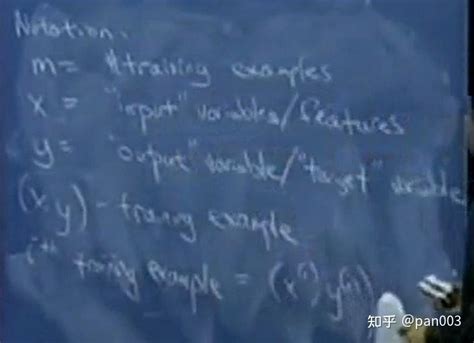 Notation:
m = # training examples
x = "input" variables/features
y = "output" variable/"target" variable
(x, y) - training example
i^th training example = (x^(i), y^(i))
知乎 @pan003